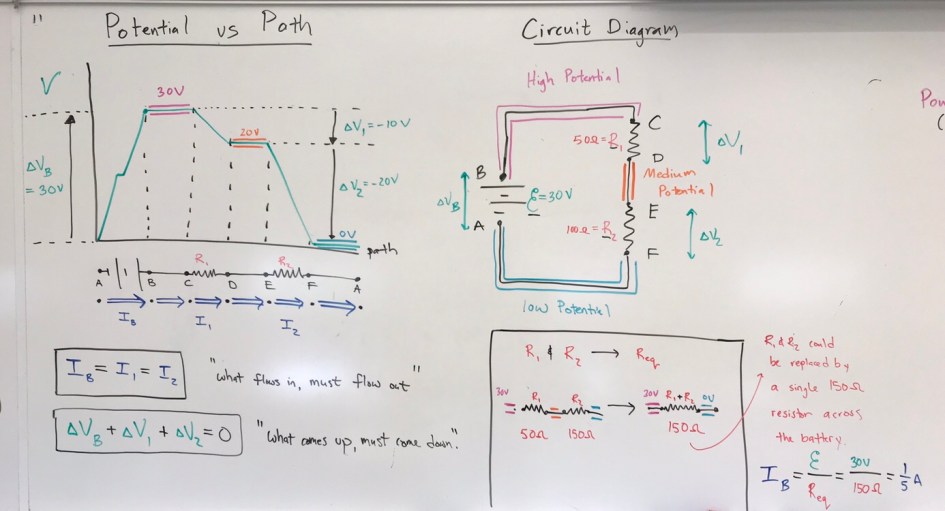 "
Potential vs Path
V
30V
20V
0V
path
ΔV_B
= 30V
ΔV₁ = -10V
ΔV₂ = -20V
A B C R₁ D E R₂ F A
I_B I₁ I₂
I_B = I₁ = I₂
"what flows in, must flow out"
ΔV_B + ΔV₁ + ΔV₂ = 0
"What comes up, must come down."
Circuit Diagram
High Potential
C
50Ω = R₁
ΔV₁
D
Medium
Potential
B
ΔV_B
ℰ = 30V
A
E
100Ω = R₂
ΔV₂
F
low Potential
R₁ & R₂ → Req
30V R₁ R₂ → 30V R₁+R₂ 0V
50Ω 150Ω 150Ω
R₁ & R₂ could
be replaced by
a single 150Ω
resistor across
the battery.
I_B = ℰ/Req = 30V/150Ω = 1/5 A
Pow
(